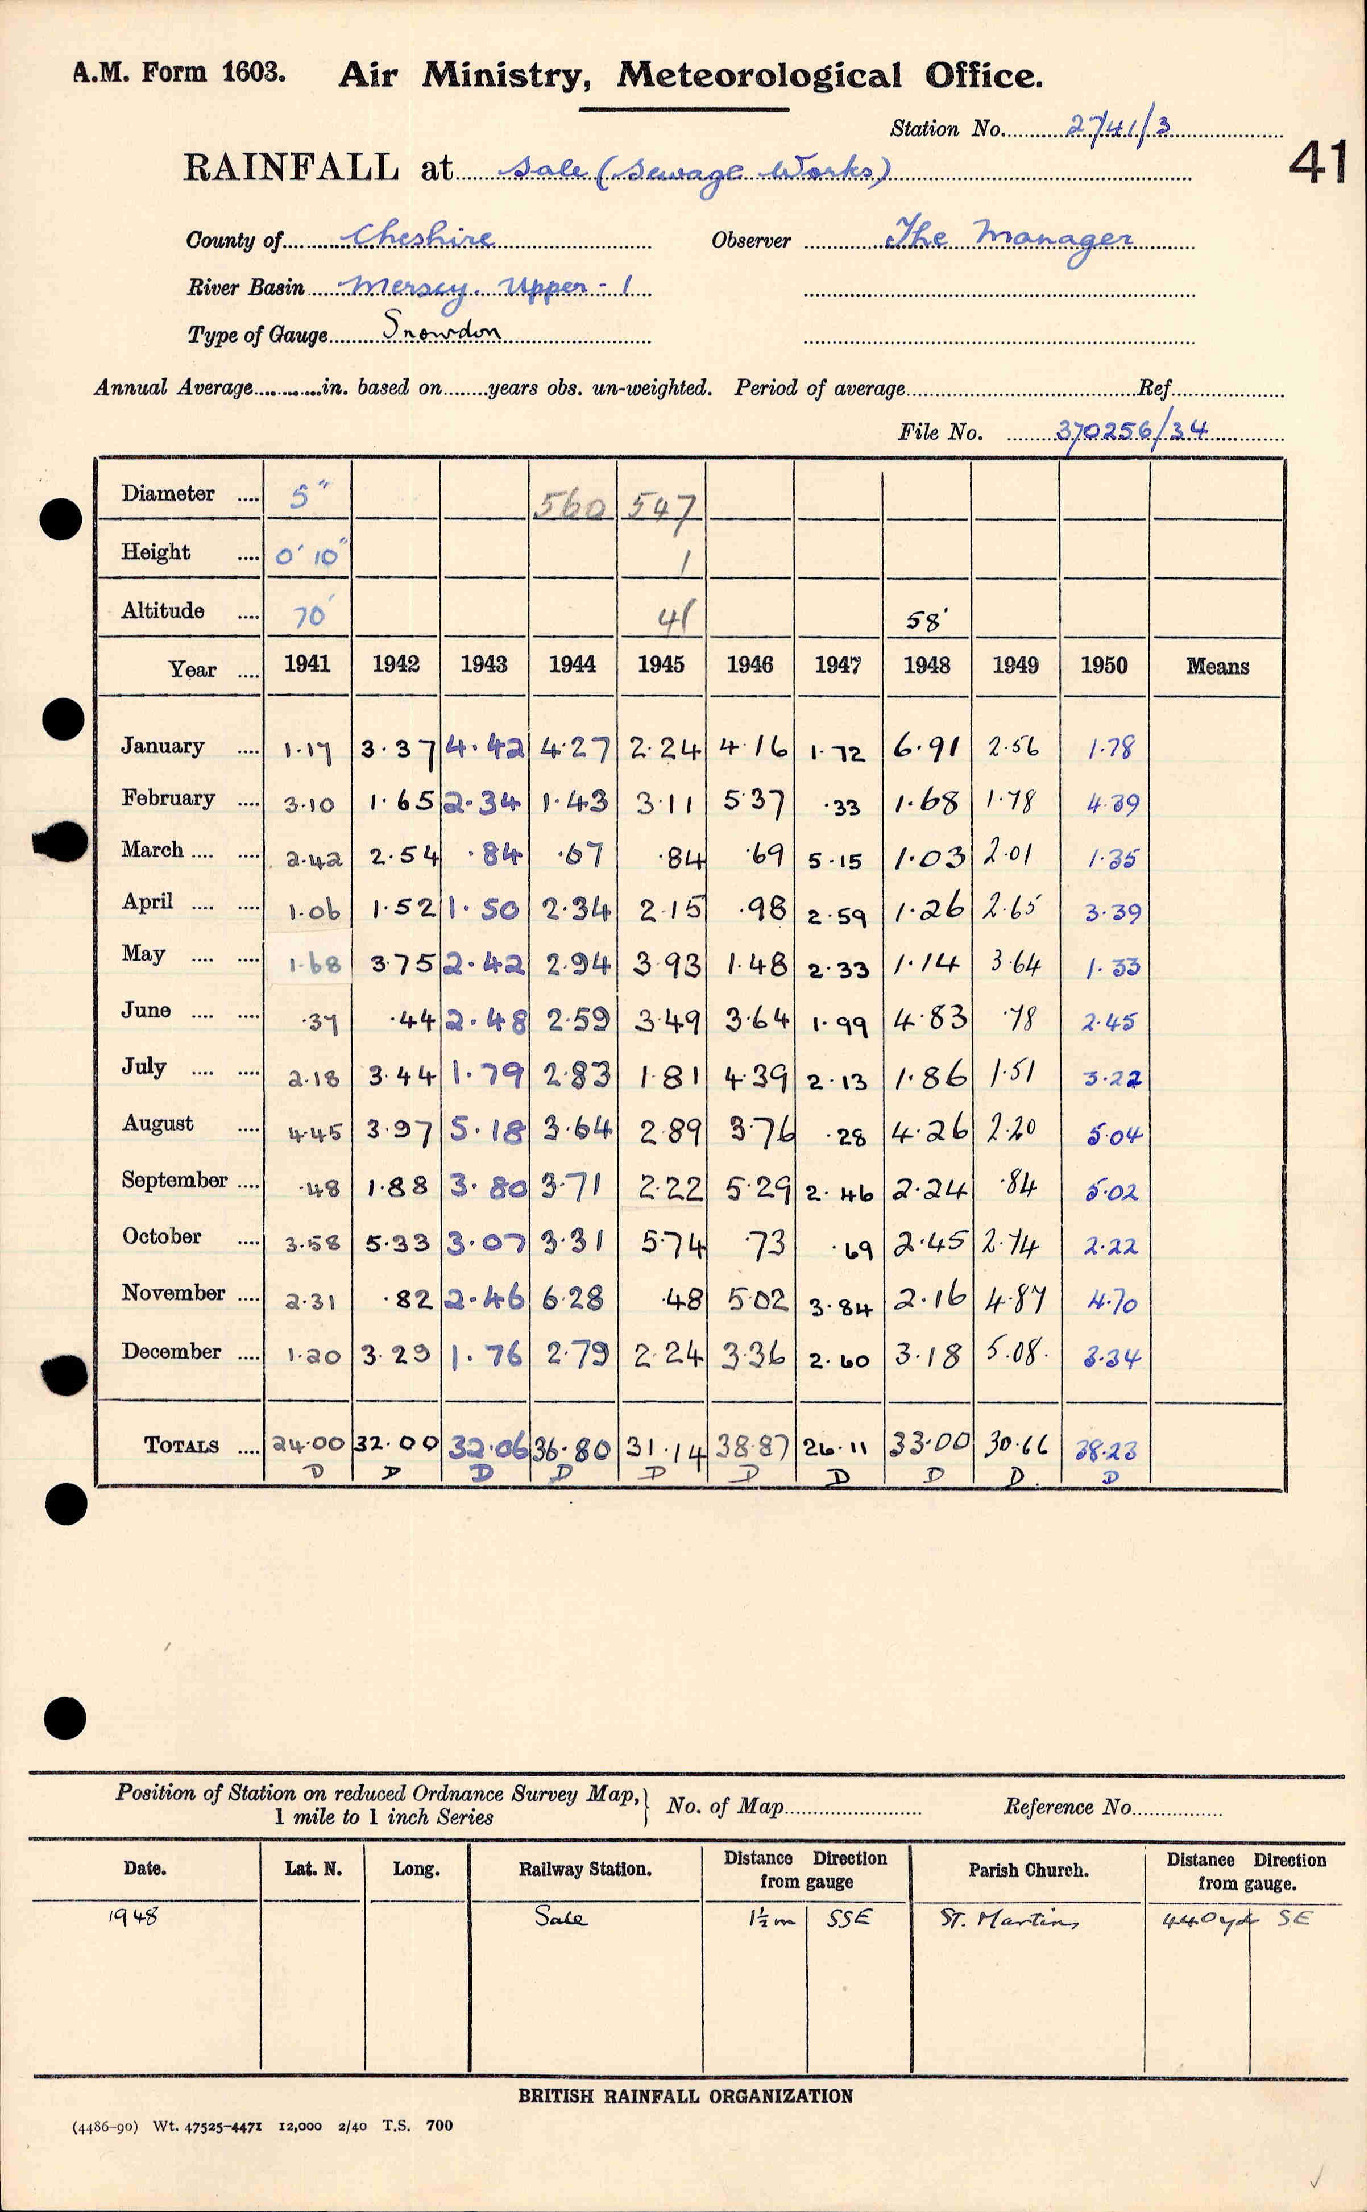 A.M. Form 1603. Air Ministry, Meteorological Office.
Station No. 2741/3
41
RAINFALL at Sale (Sewage Works)
County of Cheshire Observer The Manager
River Basin Mersey. Upper - 1
Type of Gauge Snowdon
Annual Average in. based on years obs. un-weighted. Period of average Ref
File No. 370256/34
Diameter 5" 560 547
Height 0' 10" 1
Altitude 70' 41 58'
Year 1941 1942 1943 1944 1945 1946 1947 1948 1949 1950 Means
January 1.17 3.37 4.42 4.27 2.24 4.16 1.72 6.91 2.56 1.78
February 3.10 1.65 2.34 1.43 3.11 5.37 .33 1.68 1.78 4.39
March 2.42 2.54 .84 .67 .84 .69 5.15 1.03 2.01 1.35
April 1.06 1.52 1.50 2.34 2.15 .98 2.59 1.26 2.65 3.39
May 1.68 3.75 2.42 2.94 3.93 1.48 2.33 1.14 3.64 1.33
June .37 .44 2.48 2.59 3.49 3.64 1.99 4.83 .78 2.45
July 2.18 3.44 1.79 2.83 1.81 4.39 2.13 1.86 1.51 3.22
August 4.45 3.97 5.18 3.64 2.89 3.76 .28 4.26 2.20 5.04
September .48 1.88 3.80 3.71 2.22 5.29 2.46 2.24 .84 5.02
October 3.58 5.33 3.07 3.31 5.74 .73 .69 2.45 2.74 2.22
November 2.31 .82 2.46 6.28 .48 5.02 3.84 2.16 4.87 4.70
December 1.20 3.29 1.76 2.79 2.24 3.36 2.60 3.18 5.08 3.34
TOTALS 24.00 32.00 32.06 36.80 31.14 38.87 26.11 33.00 30.66 38.23
D D D D D D D D D D
Position of Station on reduced Ordnance Survey Map, 1 mile to 1 inch Series } No. of Map Reference No.
Date. Lat. N. Long. Railway Station. Distance from gauge Direction Parish Church. Distance from gauge. Direction
1948 Sale 1½ m SSE St. Martins 440 yd SE
BRITISH RAINFALL ORGANIZATION
(4486-90) Wt. 47525-4471 12,000 2/40 T.S. 700